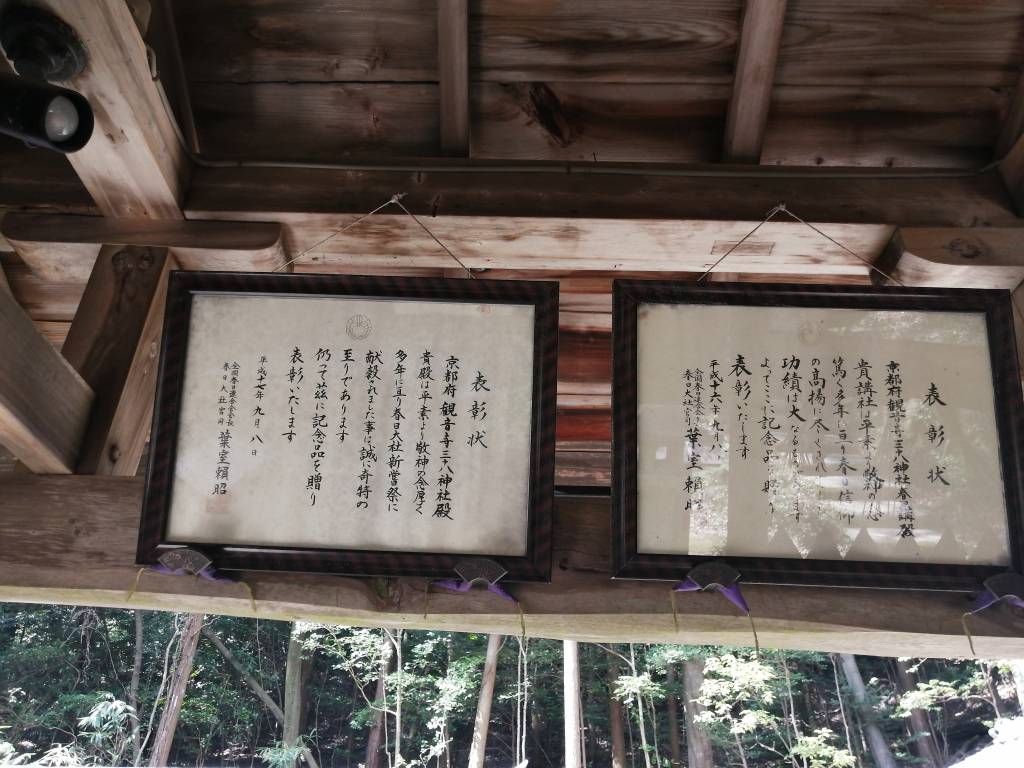 表彰状
京都府 観音寺三十八神社殿
貴殿は平素より敬神の念厚く
多年に亘り春日大社新嘗祭に
献穀されました事は誠に奇特の
至りであります
仍って茲に記念品を贈り
表彰いたします
平成十七年九月八日
全国春日連合会会長
春日大社宮司 葉室頼昭
表彰状
京都府 観音寺三十八神社春日講殿
貴講社は平素より敬神の念
篤く多年に亘り春日信仰
の高揚に尽くされ
功績は大なる
よってここに記念品を贈り
表彰いたします
平成十六年九月八
全国春日連合会会長
春日大社宮司 葉室頼昭